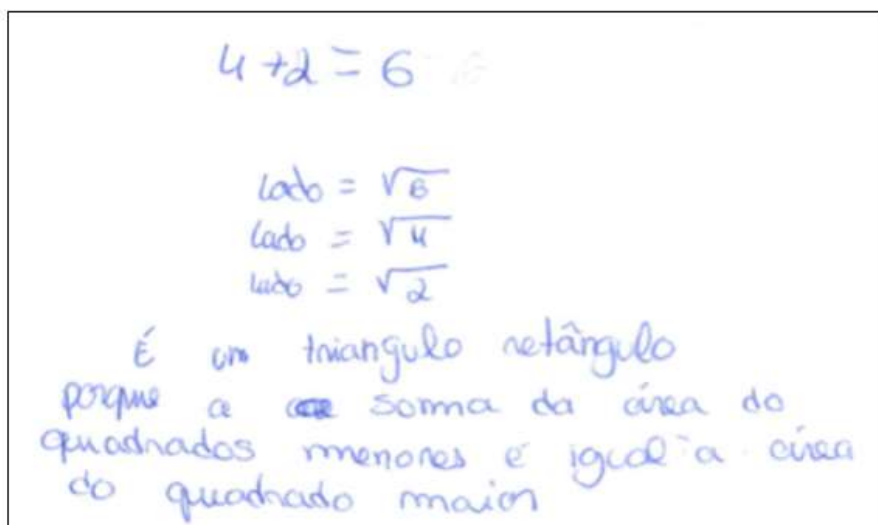 4+2=6
lado = √6
lado = √4
lado = √2
É um triangulo retângulo
porque a soma da área do
quadrados menores é igual a área
do quadrado maior